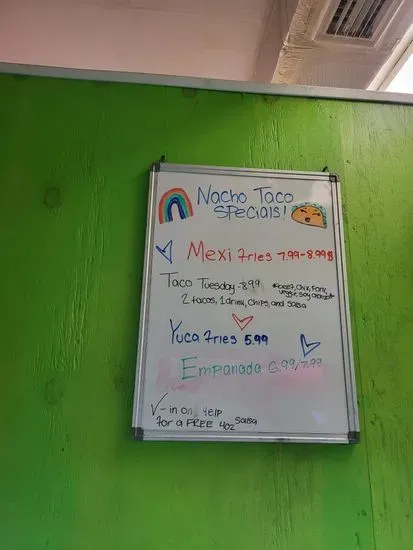 Nacho Taco
Specials!
Mexi Fries 7.99-8.99$
Taco Tuesday - 8.99 *beef, chix, Pork,
veggie, soy chorizo*
2 tacos, 1 drink, chips, and salsa
Yuca Fries 5.99
Empanada 6.99/7.99
✓-in on Yelp
for a FREE 4oz salsa